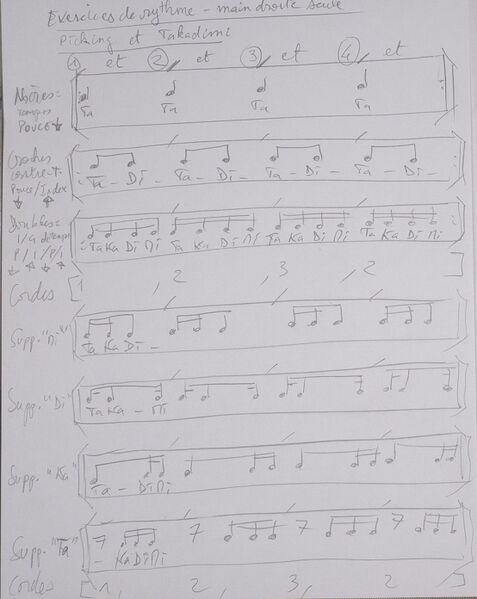 Exercices de rythme - main droite seule
Picking et Takadimi
① et ② et ③ et ④ et
Noires =
temps
Pouce ↓
Ta Ta Ta Ta
Croches
contre-t
Pouce/Index
↓ ↑
Ta - Di - Ta - Di - Ta - Di - Ta - Di -
Doubles =
1/4 de temps
P / I / P / I
↓ ↑ ↓ ↑
Ta Ka Di Mi Ta Ka Di Mi Ta Ka Di Mi Ta Ka Di Mi
Cordes [1 , 2 , 3 , 2 ]
Supp. "Mi"
Ta Ka Di -
Supp. "Di"
Ta Ka - Mi
Supp. "Ka"
Ta - Di Mi
Supp. "Ta"
- Ka Di Mi
Cordes [1, 2, 3, 2 ]